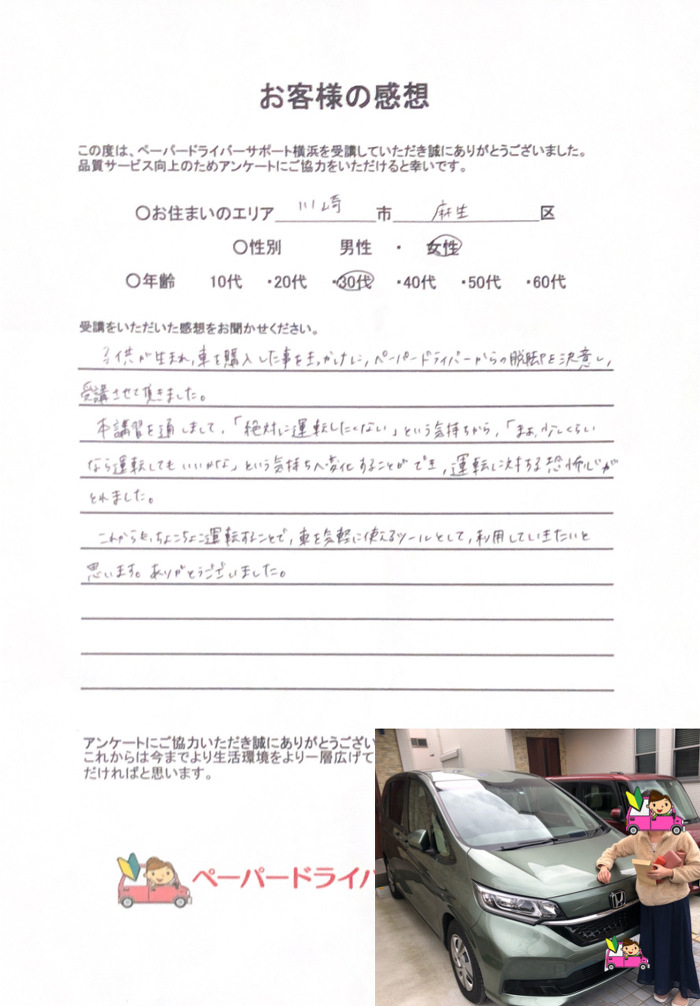 お客様の感想
この度は、ペーパードライバーサポート横浜を受講していただき誠にありがとうございました。
品質サービス向上のためアンケートにご協力をいただけると幸いです。
〇お住まいのエリア 川崎 市 麻生 区
〇性別 男性 ・ 女性
〇年齢 10代 ・20代 ・30代 ・40代 ・50代 ・60代
受講をいただいた感想をお聞かせください。
子供が生まれ、車を購入した事をきっかけに、ペーパードライバーからの脱却を決意し、
受講させて頂きました。
本講習を通しまして、「絶対に運転したくない」という気持ちから、「まぁ、少しくらい
なら運転してもいいかな」という気持ちへ変化することができ、運転に対する恐怖心が
とれました。
これからも、ちょこちょこ運転することで、車を気軽に使えるツールとして、利用していきたいと
思います。ありがとうございました。
アンケートにご協力いただき誠にありがとうござい
これからは今までより生活環境をより一層広げて
だければと思います。
ペーパードライバ